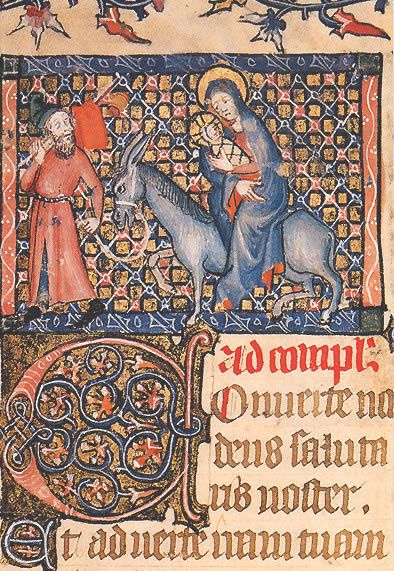 ad compl'
COnuerte no
deus saluta
ris noster.
Et aduerte iram tuam